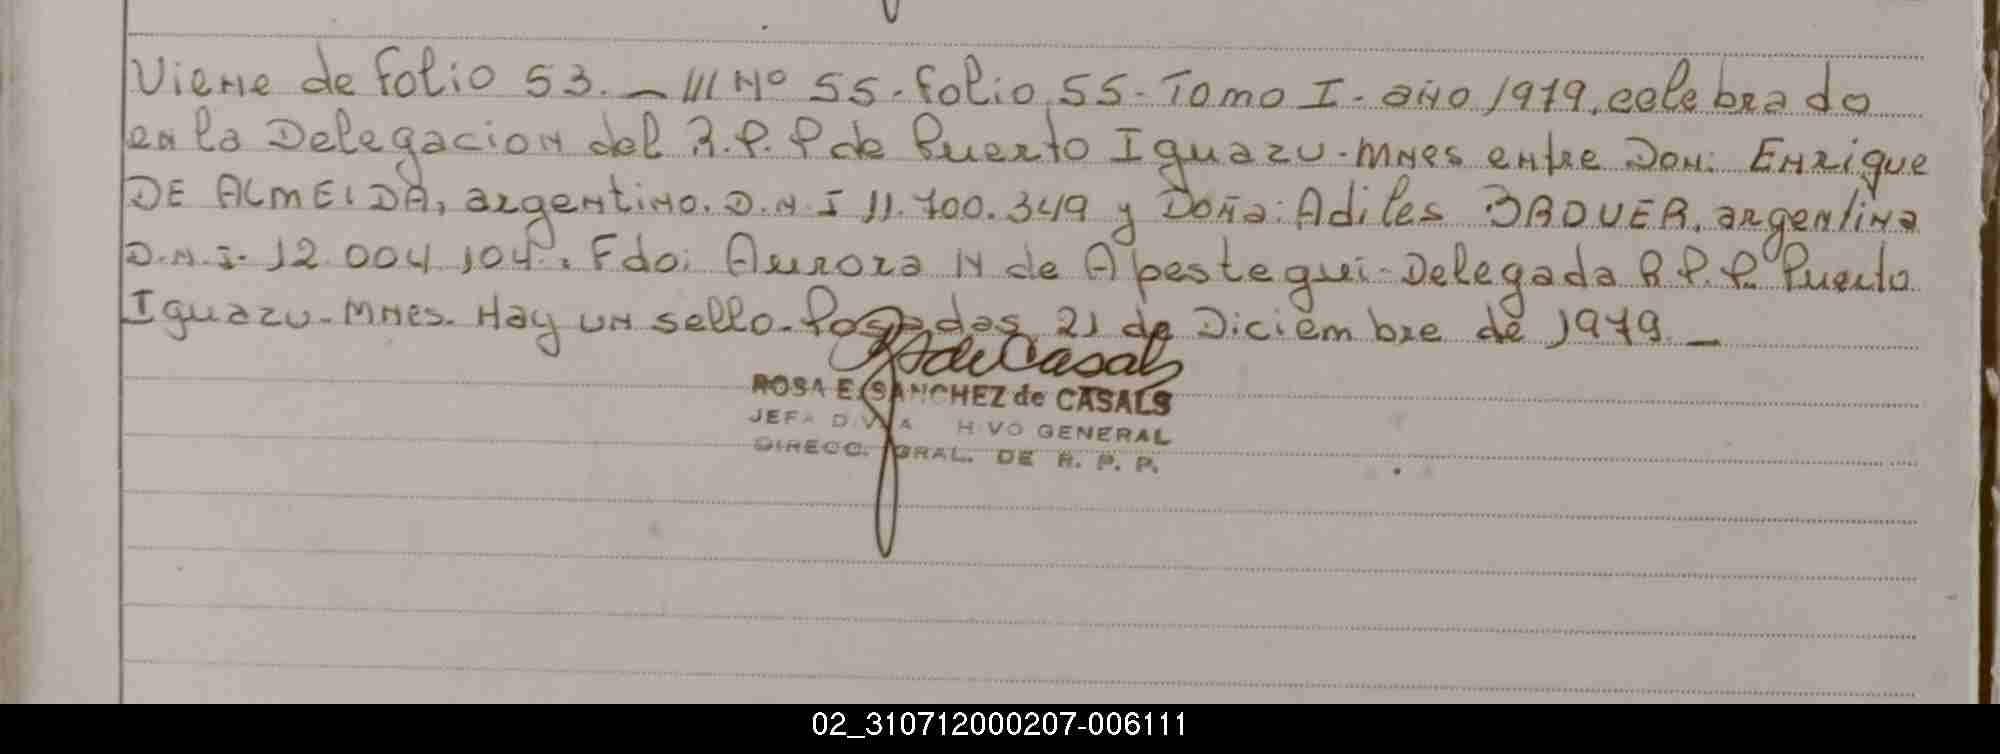 Viene de folio 53. — /// Nº 55 - folio 55 - Tomo I - año 1979, celebrado
en la Delegacion del R.P.P de Puerto Iguazu - Mnes entre Don: Enrique
DE ALMEIDA, argentino. D.N.I 11.700.349 y Doña: Adiles BAOUER, argentina
D.N.I. 12.004.104. Fdo: Aurora N de Apestegui - Delegada R.P.P. Puerto
Iguazu - Mnes. Hay un sello - Posadas 21 de Diciembre de 1979. —
de Casals
ROSA E. SANCHEZ de CASALS
JEFA DIV. A HIVO GENERAL
DIRECC. GRAL. DE R. P. P.
02_310712000207-006111